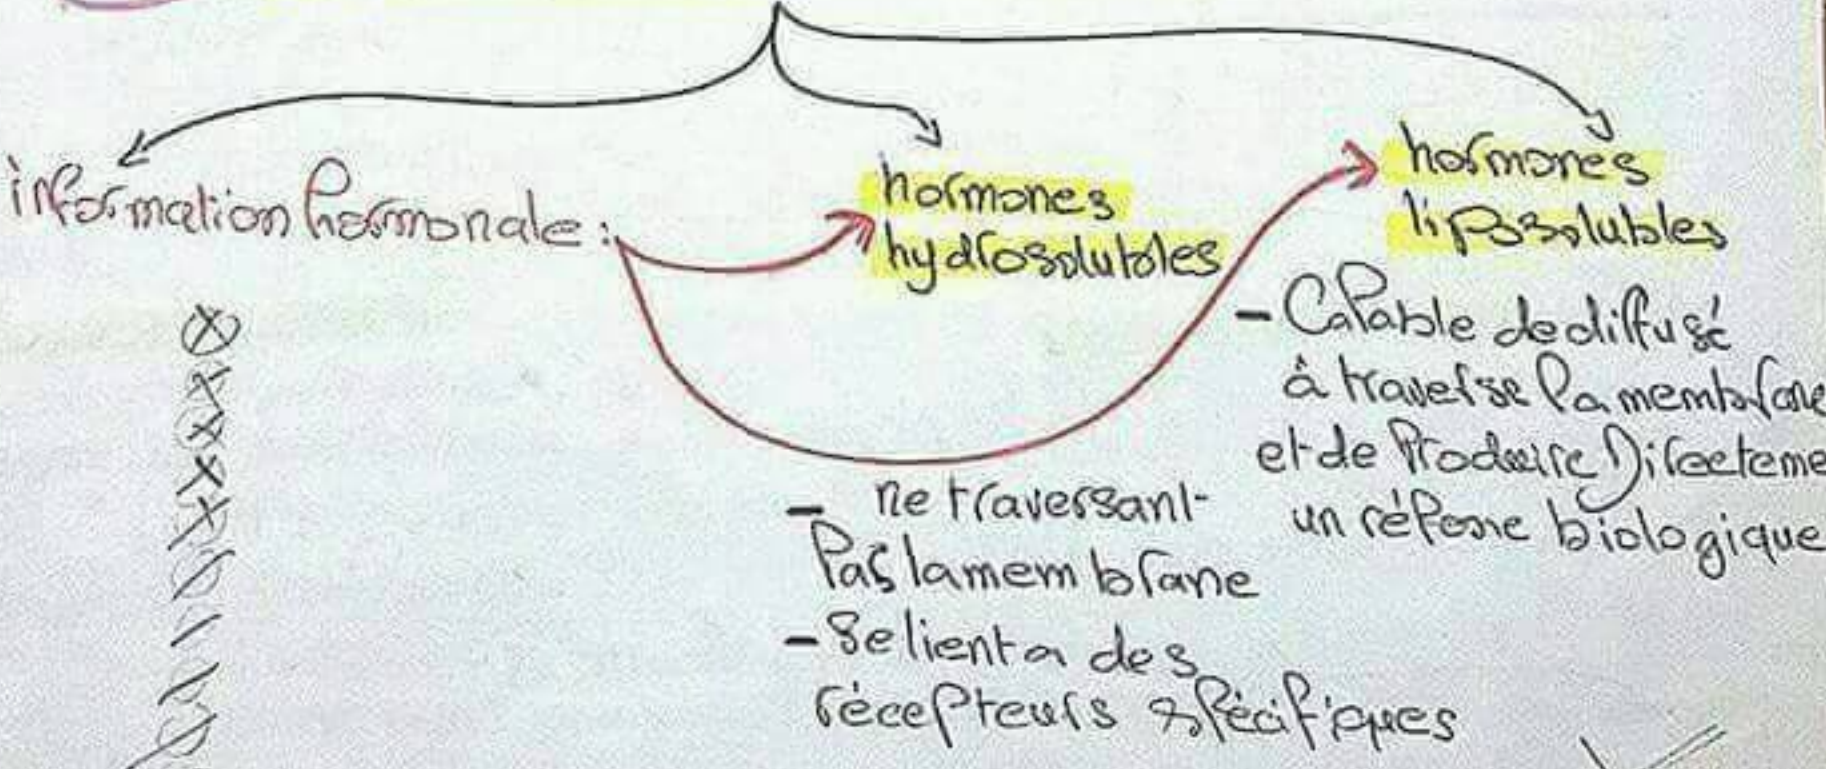 information hormonale :
hormones
hydrosolubles
- ne traversant
Pas la membrane
- Se lient a des
récepteurs spécifiques
hormones
liposolubles
- Capable de diffusé
à traverse la membrane
et de Produire Directeme
un réponse biologique